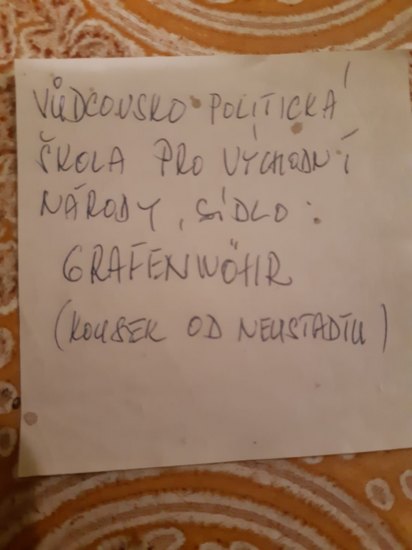 VŮDCOVSKO POLITICKÁ
ŠKOLA PRO VÝCHODNÍ
NÁRODY, SÍDLO:
GRAFENWÖHR
(KOUSEK OD NEUSTADTU)